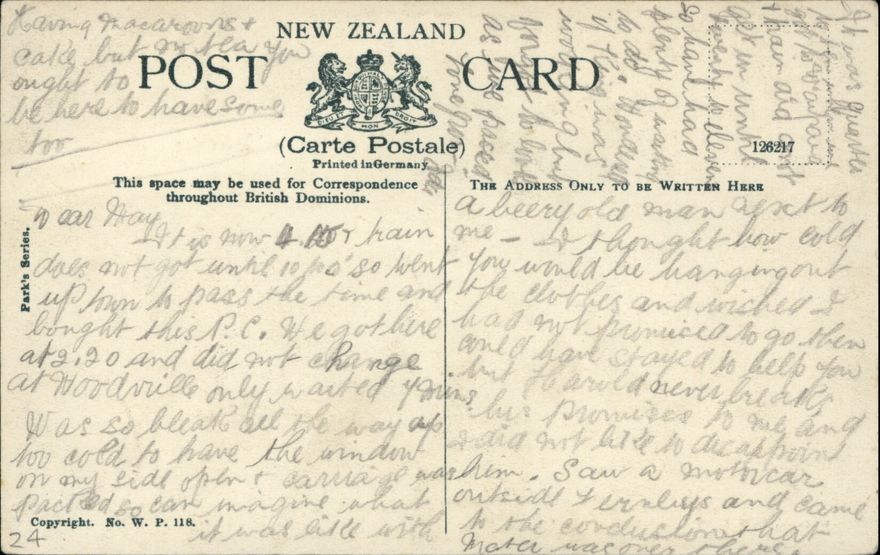 NEW ZEALAND
POST CARD
DIEU ET MON DROIT
(Carte Postale)
Printed in Germany
This space may be used for Correspondence
throughout British Dominions.
THE ADDRESS ONLY TO BE WRITTEN HERE
126217
Park's Series.
Dear May
It is now 4 train
does not got until 10 to 5 so went
up town to pass the time and
bought this P.C. We got here
at 2.20 and did not change
at Woodville only waited 7 mins
Was so bleak all the way up
too cold to have the window
on my side open + carriage was
packed so can imagine what
it was like with
a beery old man next to
me - I thought how cold
you would be hanging out
the clothes and wished I
had not promised to go then
could have stayed to help you
but Harold never breaks
his promises to me and
I did not like to disappoint
him. Saw a motorcar
outside Fernleys and came
to the conclusion that
Mater was over there
Having macaroons +
cake but no tea you
ought to
be here to have some
too
It was quarter
train did not
get in until
twenty to eleven
so have had
plenty of waiting
to do.
if there was
Copyright. No. W. P. 118.
24